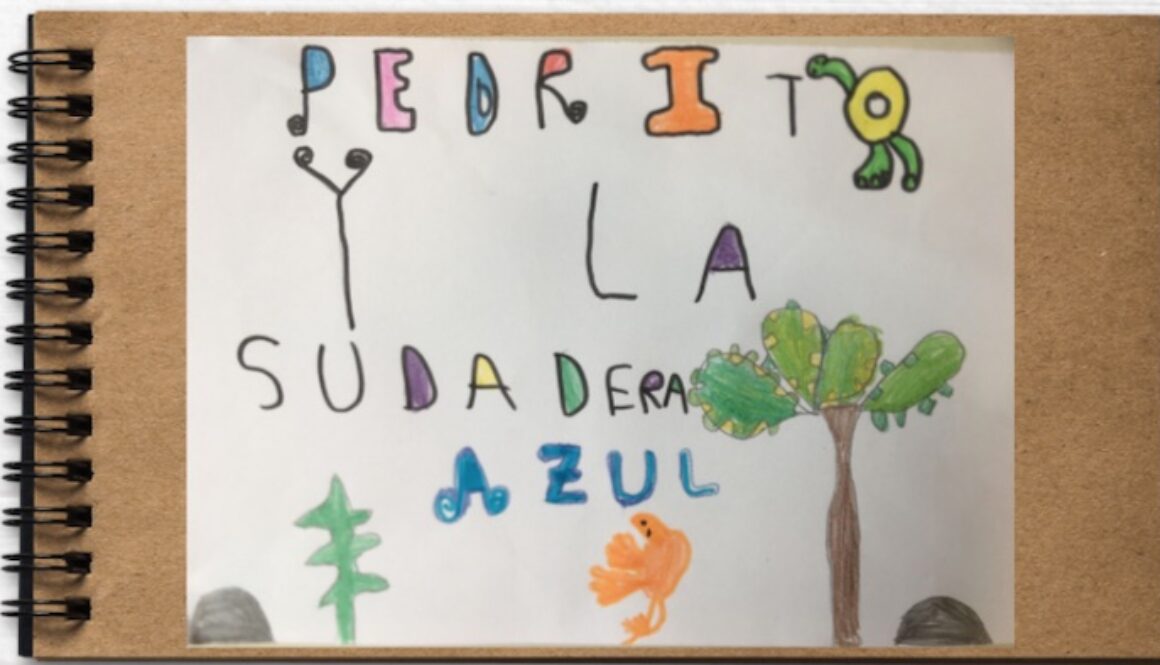 PEDRITO
Y LA
SUDADERA
AZUL